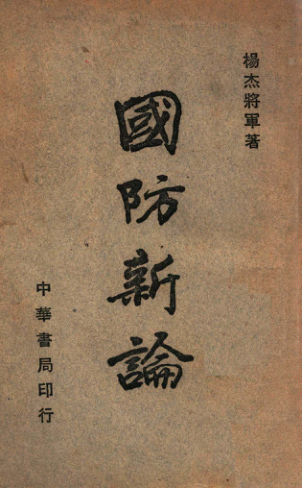 楊杰將軍著
國防新論
中華書局印行